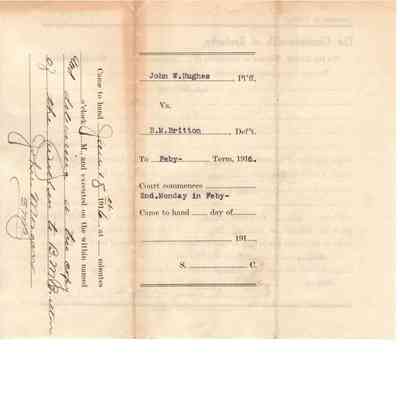 John W.Hughes , Pl'ff.
Vs.
B.M.Britton , Def't.
To Feby- Term, 1916.
Court commences
2nd.Monday in Feby-
Came to hand day of
191
S. C.
Came to hand 18th 1916, at minutes
o'clock M., and executed on the within named
delivering a true copy
of the within to B.M.Britton
John